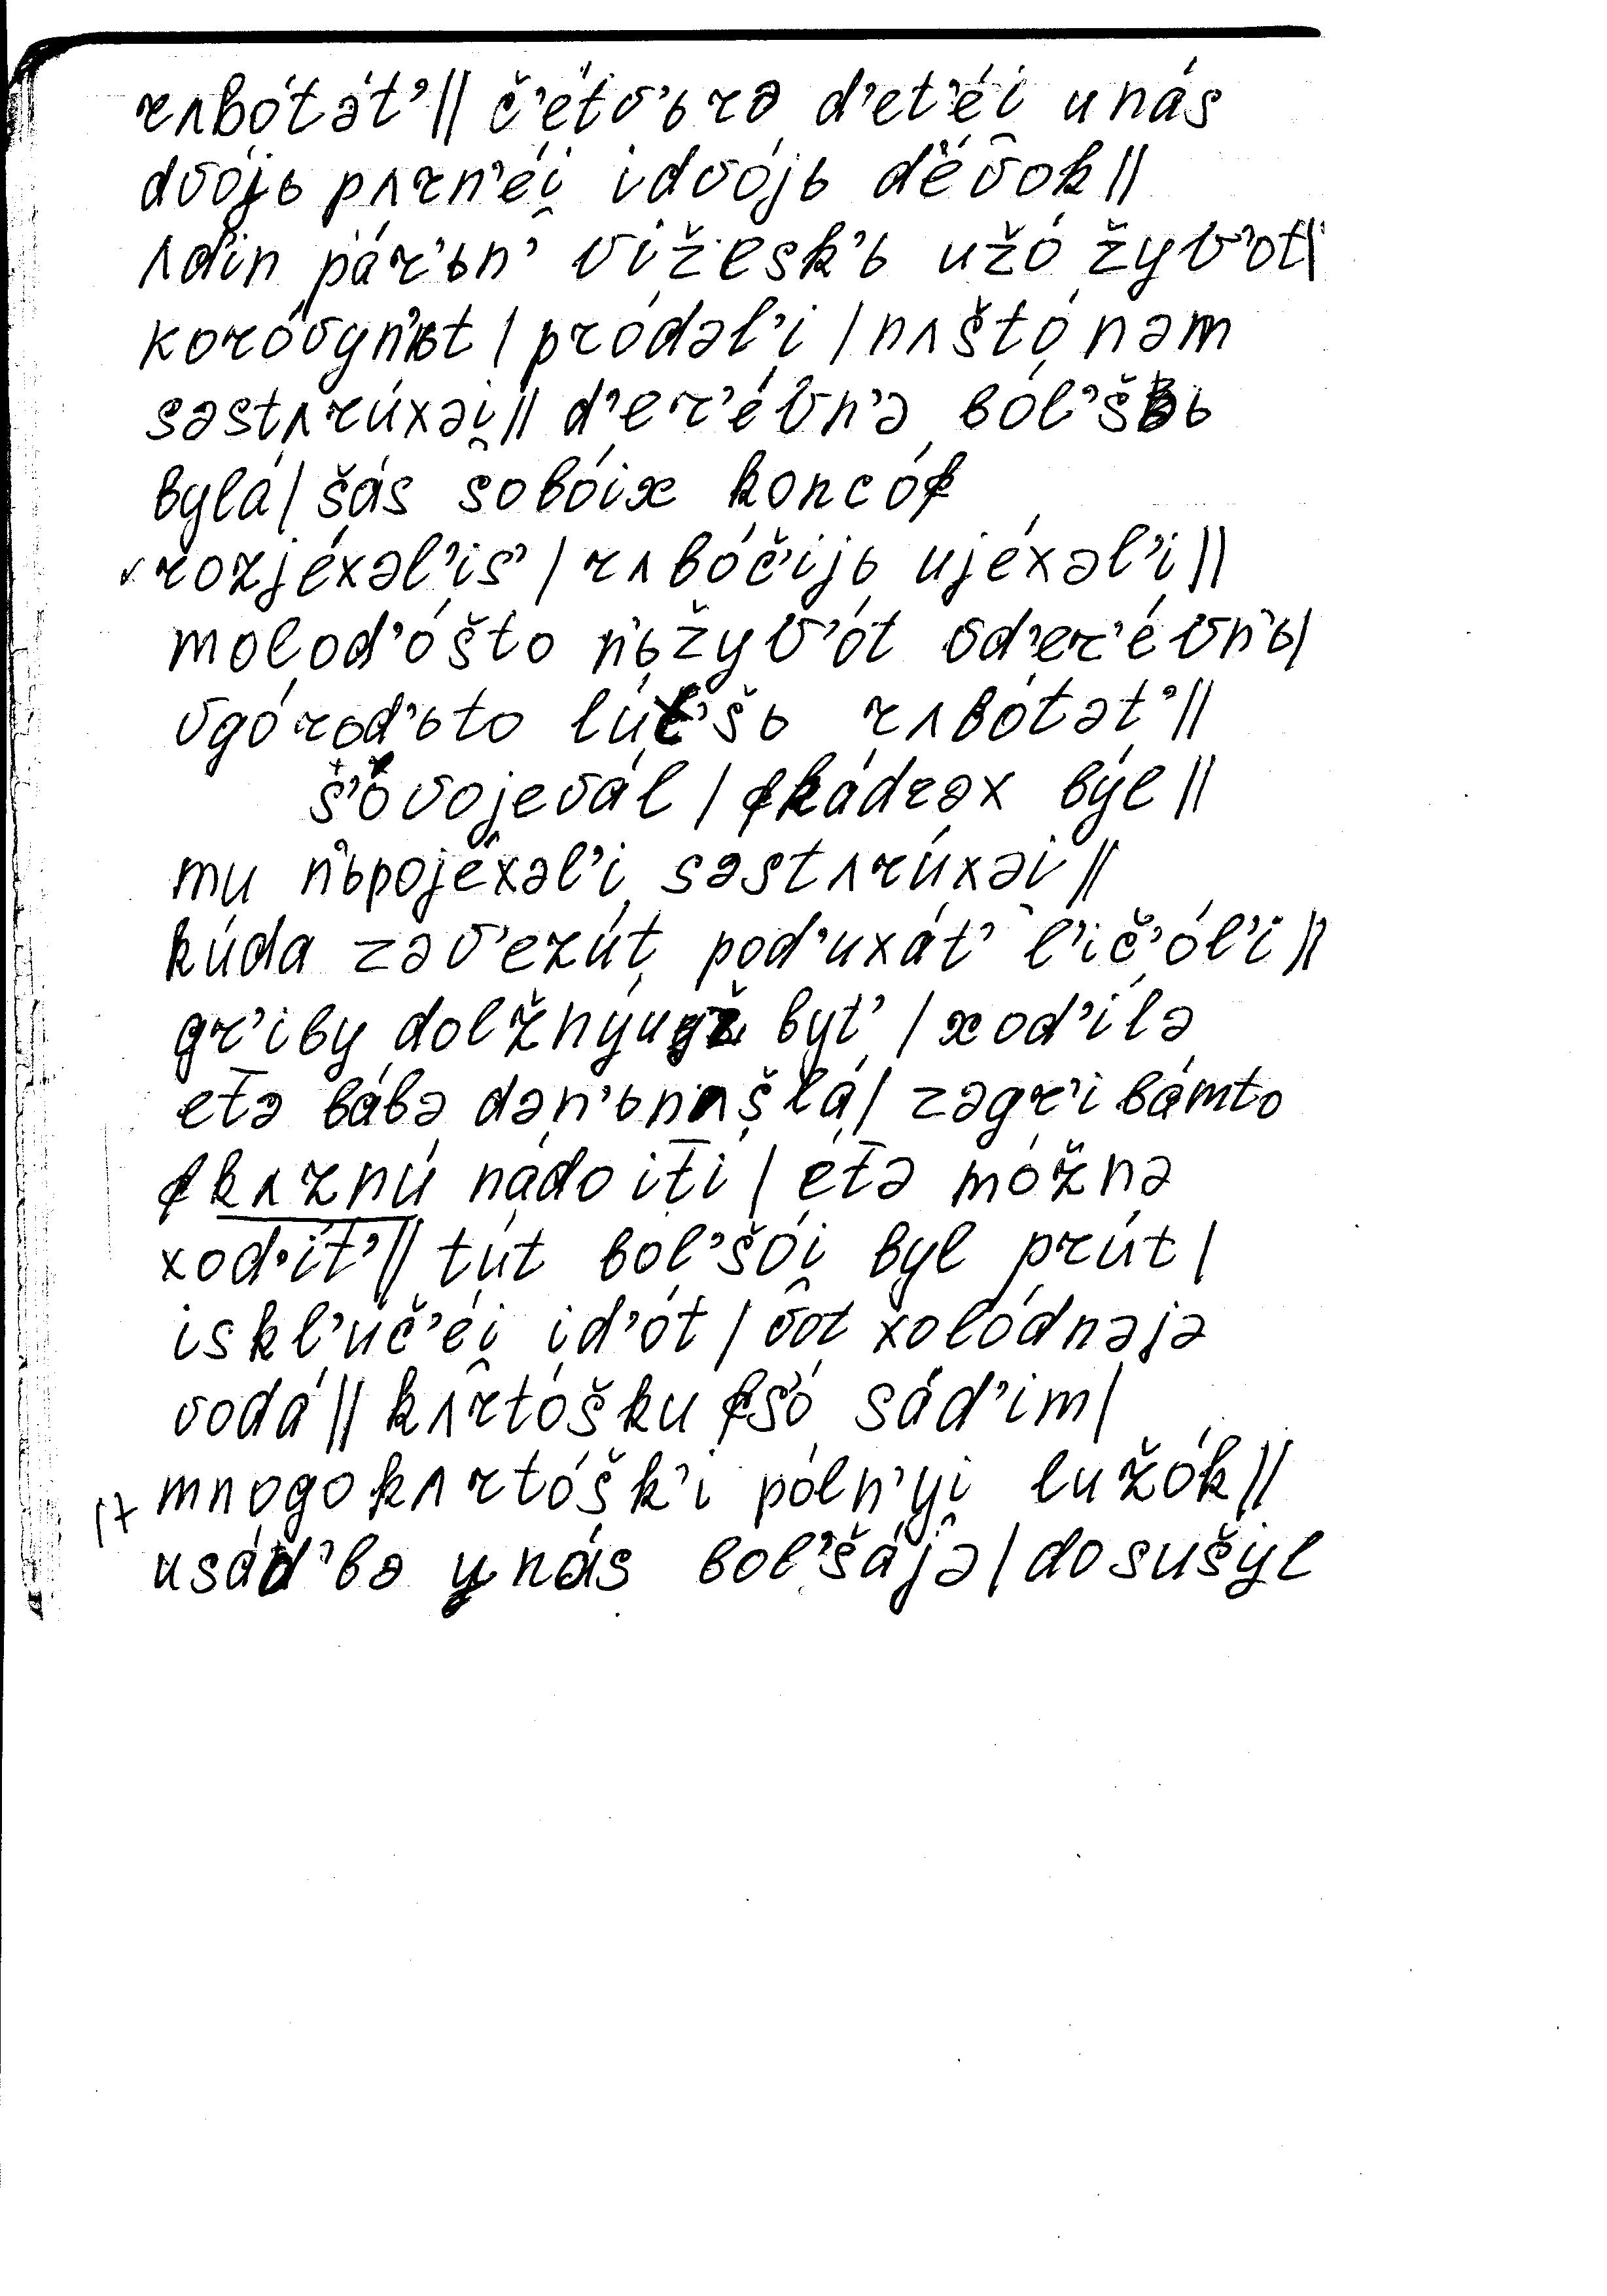 rʌbótət’|| č’étv’ьrə d’et’éi̯ unás
dvójь pʌrn’éi̯ idvójь d’év̑ok||
ʌd’ín pár’ьn’ vížesk’ь užó žyv’ot|
koróvyn’ьt | pródəl’i | nʌštó nəm
səstʌrúxəi̯|| d’er’évn’ə ból’šь
bylá| šás sobóix koncóf
rozjéxəl’is’ | rʌbóč’ijь ujéxəl’i||
molod’óšto n’ьžyv’ót vd’er’évn’ь|
vgórod’ьto lút’šь rʌbótət’||
s’o vojevál | fkádrəx býl||
mu n’ьpojéxəl’i səstʌrúxəi̯||
kúda zəv’ezút pod’uxát’ l’ič’ól’i||
gr’iby dolžnýuž byt’ | xod’ílə
et̅ə bábə dən’ьnʌšlá| zəgr’ibámto
fkʌznú nádo it̅i | ét̅ə móžnə
xod’ít’|| tút bol’šói̯ byl prút|
iskl’uč’éi̯ id’ót | vot xolódnəjə
vodá|| kʌrtóšku fs’ó sád’im|
mnogokʌrtóšk’i póln’yi̯ lužók||
usád’bə unás bol’šájə| dosušýl